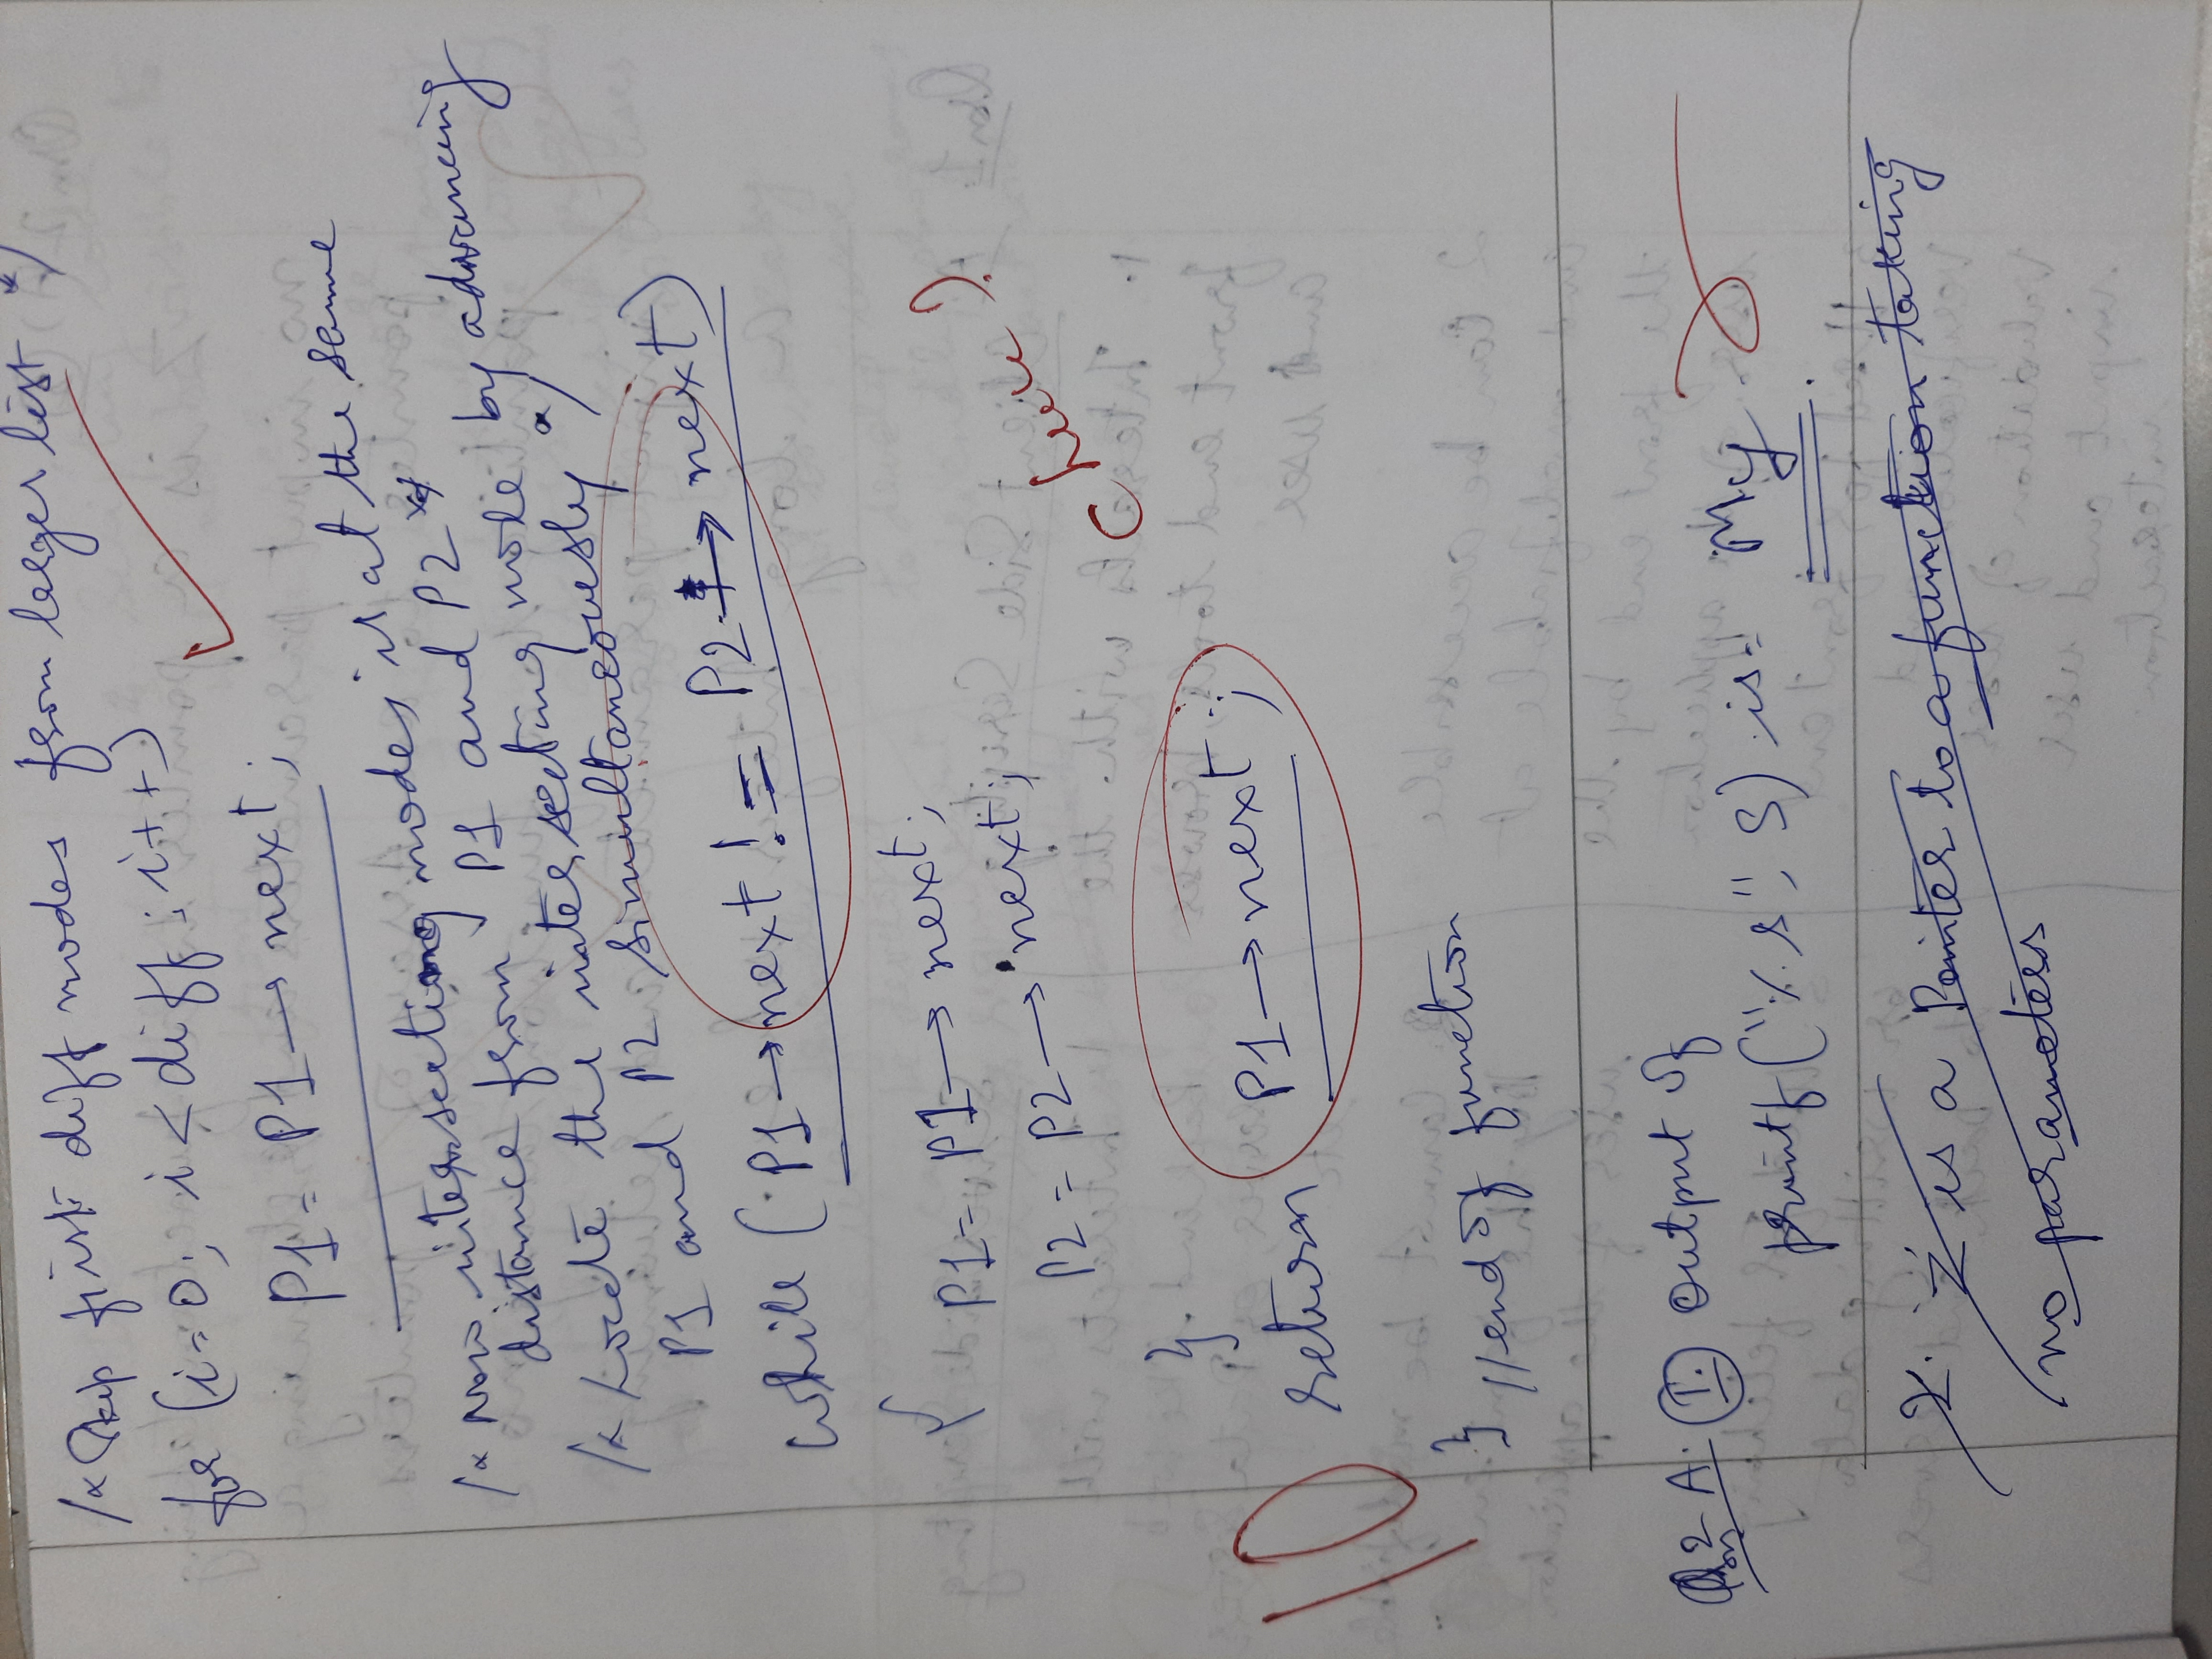 /* Skip first diff nodes from larger list */
for (i=0; i<diff; i++)
P1 = P1→next;
/* Now intersecting nodes is at the same
distance from P1 and P2 */
/* Locate the intersecting node by advancing
P1 and P2 simultaneously */
while (P1→next != P2→next)
{ P1 = P1→next;
P2 = P2→next;
Check?
}
return P1→next;
10
} //end of function
Q2 A. (I.) Output of
printf("%s", S) is = My.
2. z is a Pointer to a function taking
no parameters